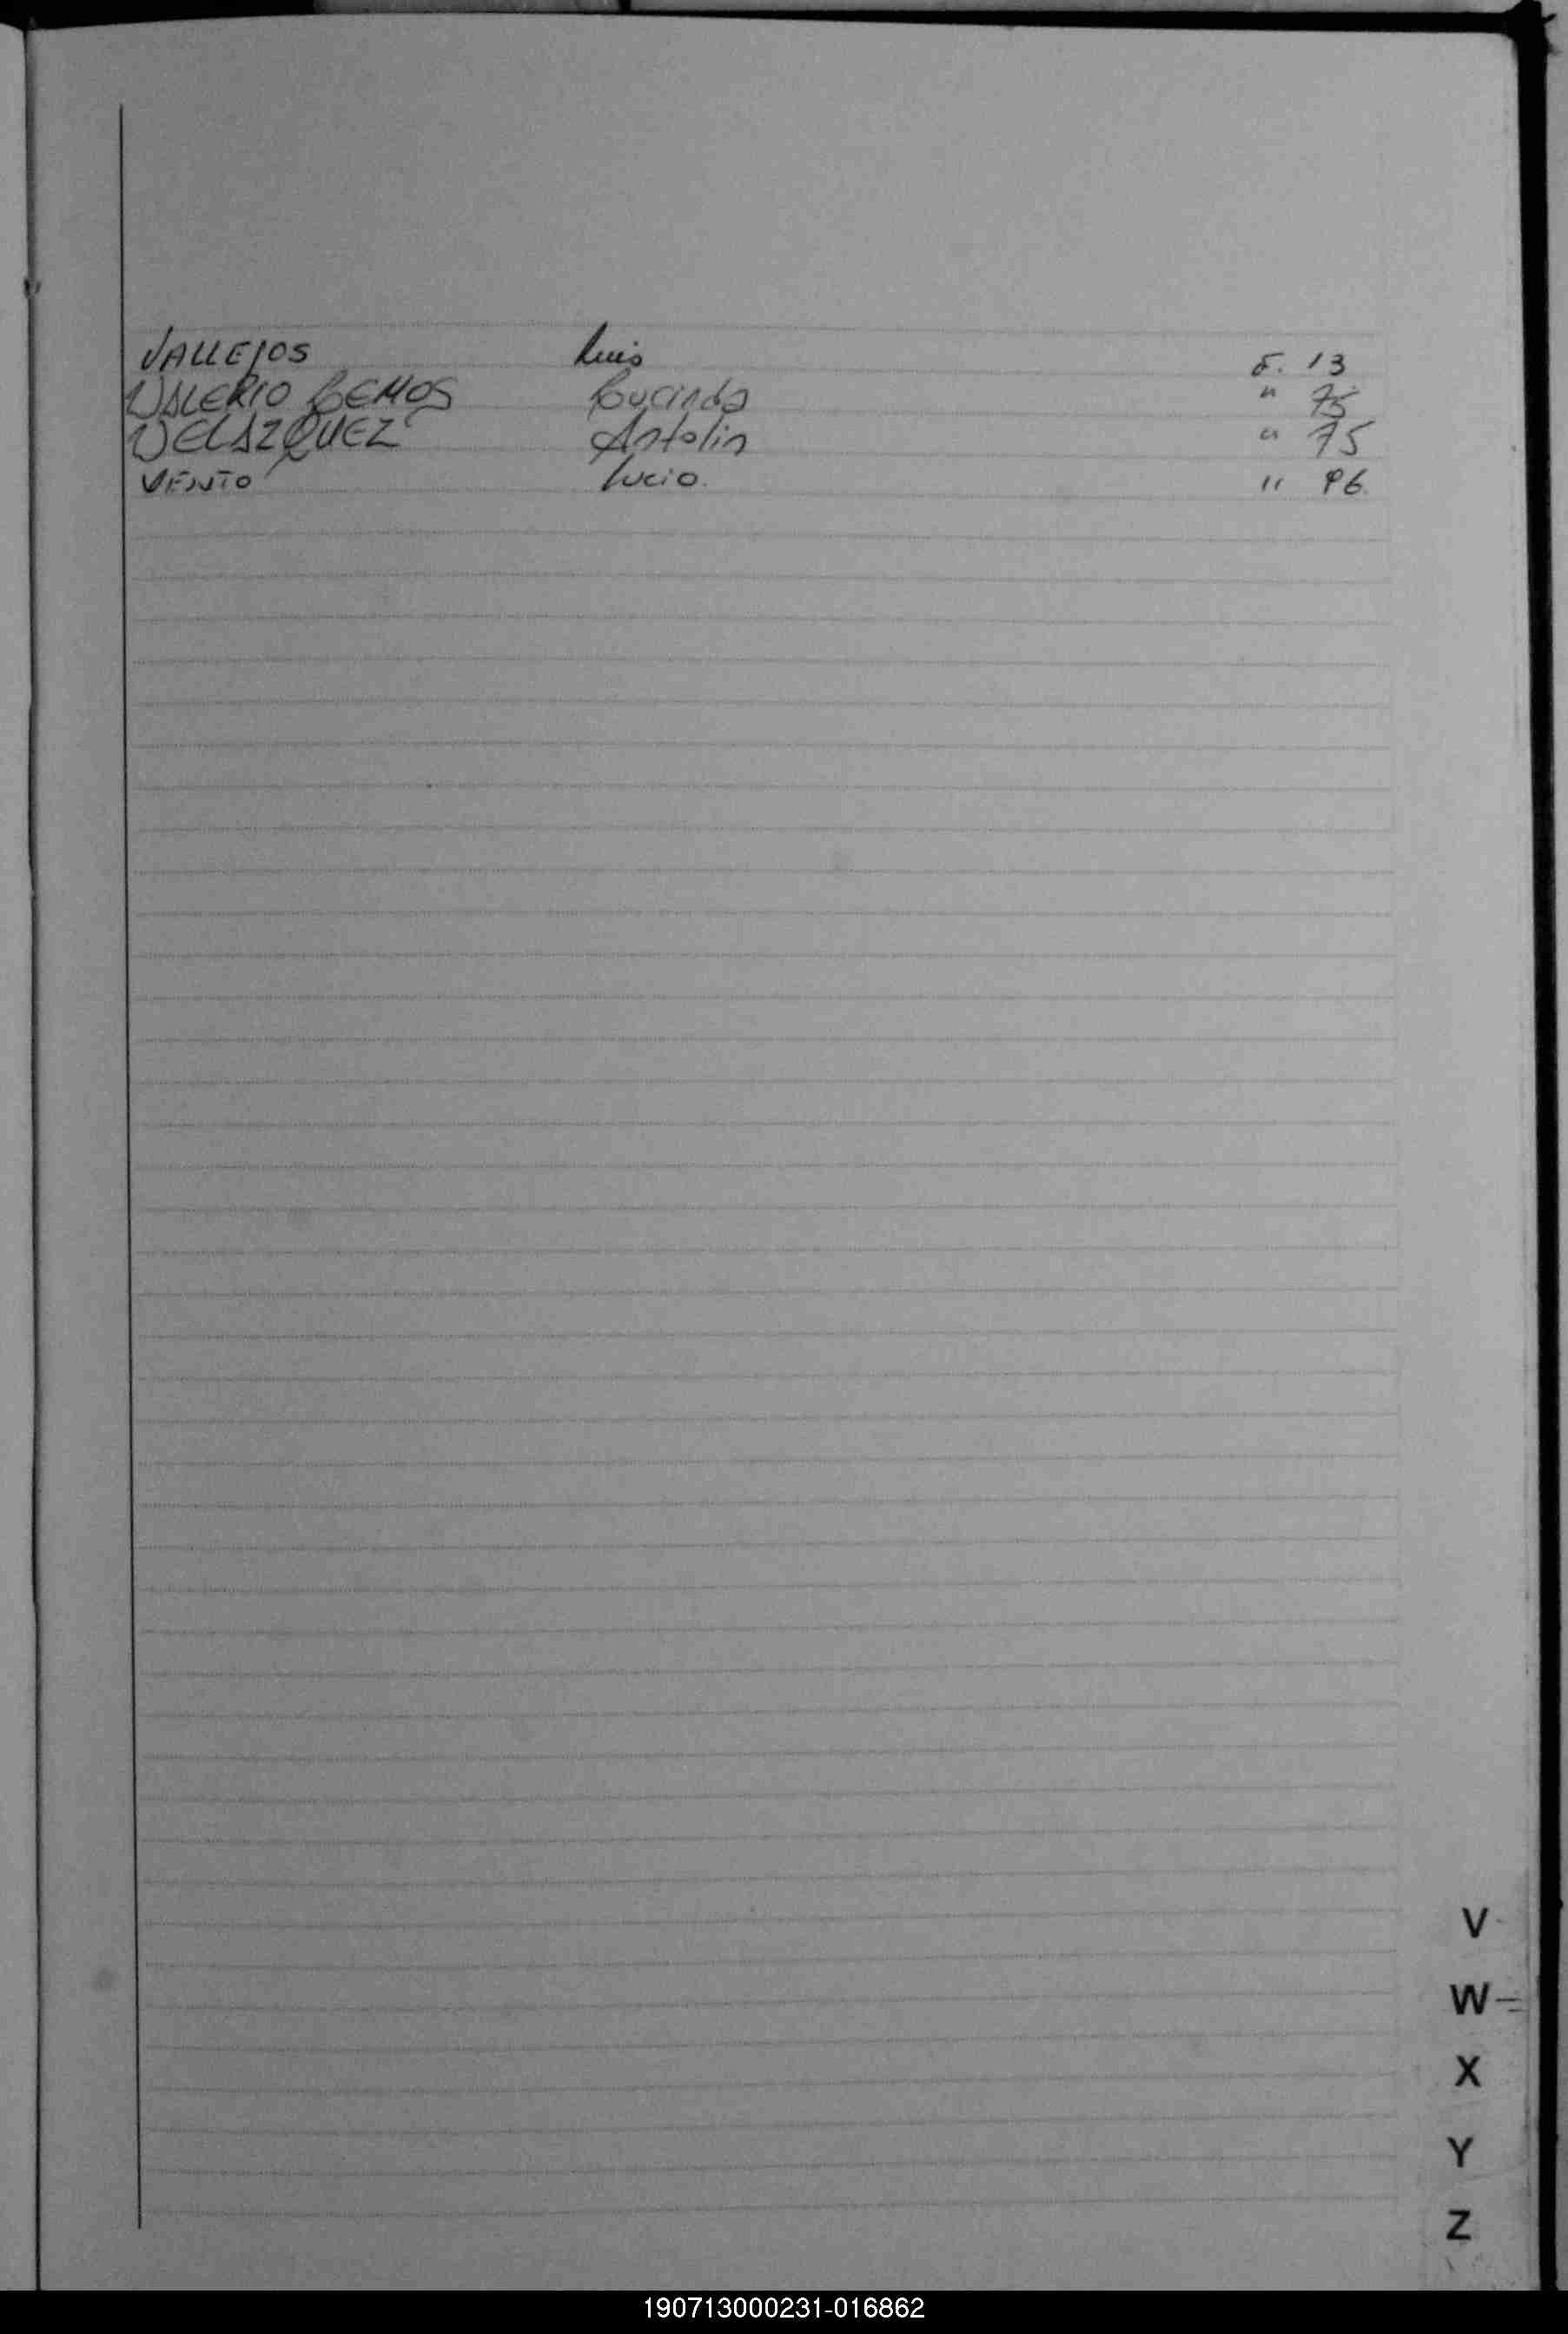 VALLEJOS Luis F. 13
VALERIO LEMOS Lucinda " 75
VELAZQUEZ Antolin " 75
VENTO Lucio. " 96
V
W
X
Y
Z
190713000231-016862